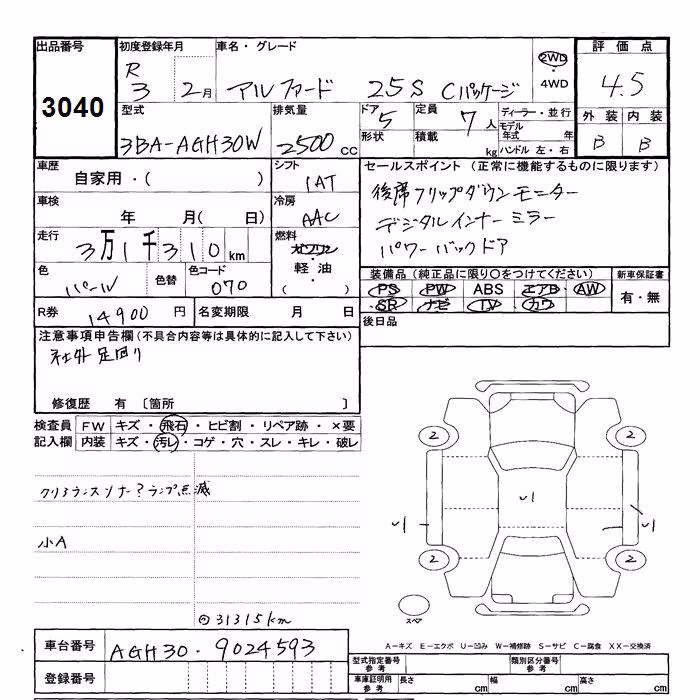 出品番号 初度登録年月 車名・グレード 評価点
3040
R 3 2月 アルファード 25S Cパッケージ 2WD ・ 4WD 4.5
型式 排気量 ドア 5 定員 7人 ディーラー・並行 外装 内装
3BA-AGH30W 2500cc 形状 積載 kg モデル年式 年 ハンドル 左・右 B B
車歴 自家用・( ) シフト 1AT セールスポイント (正常に機能するものに限ります)
車検 年 月( 日) 冷房 AAC
後席フリップダウンモニター
デジタルインナーミラー
パワーバックドア
走行 3万1千310km 燃料 ガソリン・軽油・( )
色 パール 色替 色コード 070
装備品(純正品に限り○をつけてください) 新車保証書
PS PW ABS エアB AW 有・無
SR ナビ TV カワ
R券 14900円 名変期限 月 日 後日品
注意事項申告欄(不具合内容等は具体的に記入して下さい)
社外足回り
修復歴 有 〔箇所 〕
検査員記入欄 FW キズ・飛石・ヒビ割・リペア跡・×要
内装 キズ・汚レ・コゲ・穴・スレ・キレ・破レ
クリアランスソナー?ランプ点滅
小A
31315km
2 2
2 2
スペア
A-キズ E-エクボ U-凹み W-補修跡 S-サビ C-腐食 XX-交換済
車台番号 AGH30-9024593
登録番号
型式指定番号 参考 類別区分番号 参考
車庫証明用 参考 長さ cm 幅 cm 高さ cm